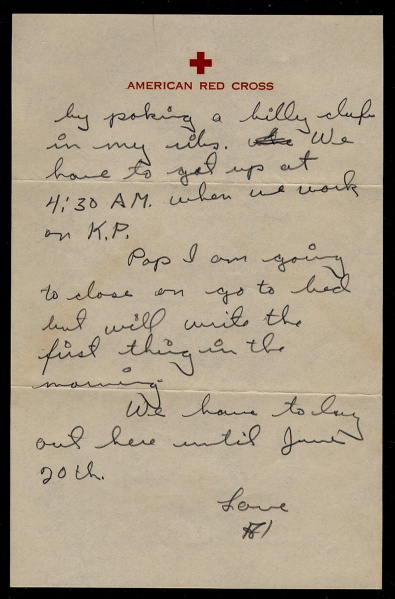 AMERICAN RED CROSS
by poking a billy clube
in my ribs. We
have to get up at
4:30 A.M. when we work
on K.P.
Pop I am going
to close an go to bed
but will write the
first thing in the
morning
We have to lay
out here until June
20th.
Love
Al